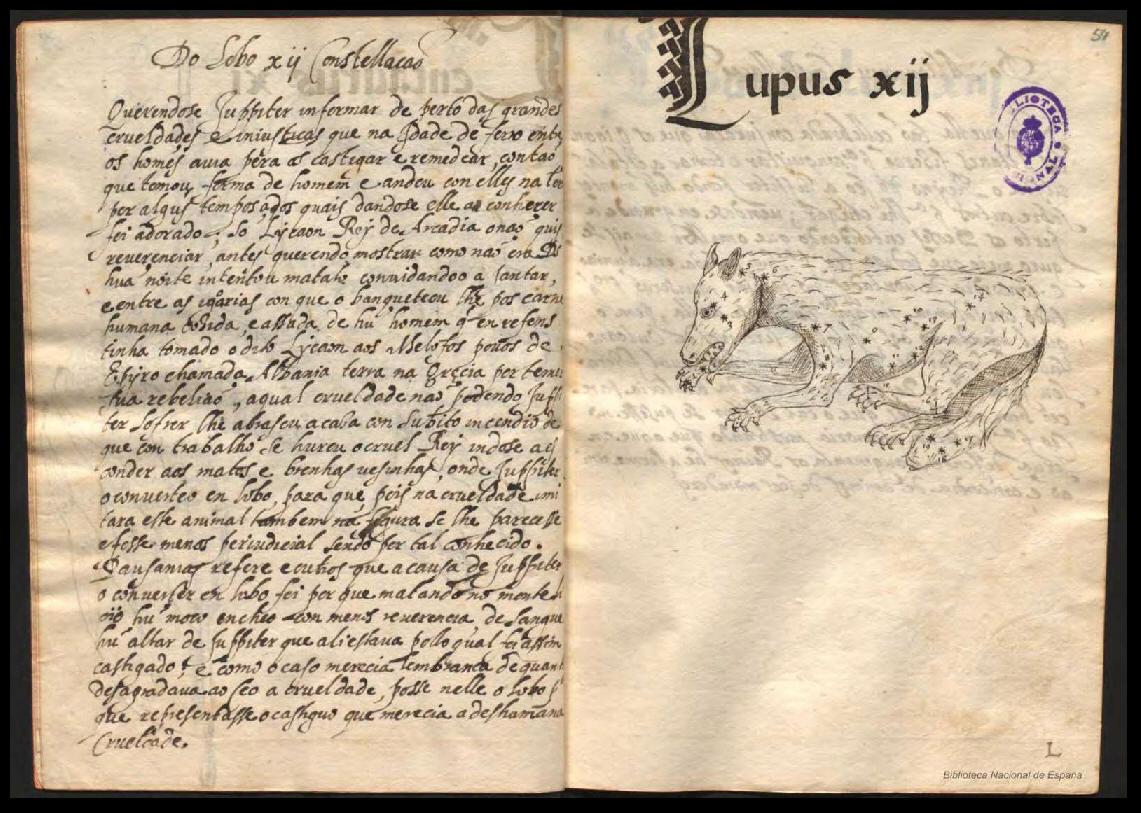 Do Lobo xij Constellacaõ
Querendose Juppiter informar de perto das grandes
crueldades e iniusticas que na idade de ferro entre
os homẽs auia pera as castigar e remedear, contão
que tomou forma de homem e andou con elles na
por algũs tempos a dos quais dandose elle a conhecer
foi adorado, só Lycaon Rey de Arcadia o não quis
reuerenciar, antes querendo mostrar como não era
hũa noite intentou matalo conuidandoo a Jantar,
e entre as iguarias con que o banqueteou lhe pos carne
humana cozida, e assada, de hũ homem q̃ en refens
tinha tomado o dito Lycaon aos Melotos pouos de
Epyro chamada Albania terra na Grecia por temer
sua rebelião, a qual crueldade não podendo Juppi
ter sofrer lhe abrasou a casa con subito incendio de
que con trabalho se liurou o cruel Rey indose a es
conder aos matos e brenhas uesinhas, onde Juppiter
o conuerteo en lobo, para que pois na crueldade imi
tara este animal tambem na figura se lhe parecesse
e fosse menos periudicial sendo por tal conhecido.
Pausanias refere e outros que a causa de Juppiter
o conuerter en lobo foi por que matando no monte
hũ moco encheo con menos reuerencia de sangue
hũ altar de Juppiter que ali estaua pollo qual foi assim
castigado, e como o caso merecia lembranca de quanto
desagradaua ao ceo a crueldade, posse nelle o lobo p
que representasse o castiguo que merecia a deshumana
Crueldade.
54
Lupus xij
BIBLIOTECA NACIONAL
L
Biblioteca Nacional de España